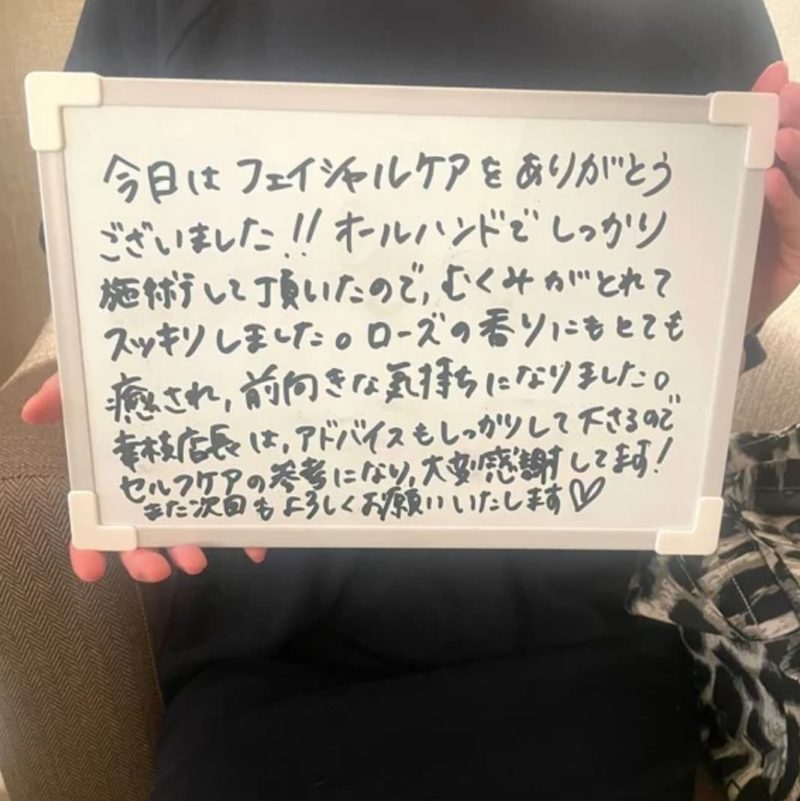 今日はフェイシャルケアをありがとう
ございました!!オールハンドでしっかり
施術して頂いたので,むくみがとれて
スッキリしました。ローズの香りにもとても
癒され,前向きな気持ちになりました。
幸枝店長は,アドバイスもしっかりして下さるので
セルフケアの参考になり,大変感謝してます!
また次回もよろしくお願いいたします♡